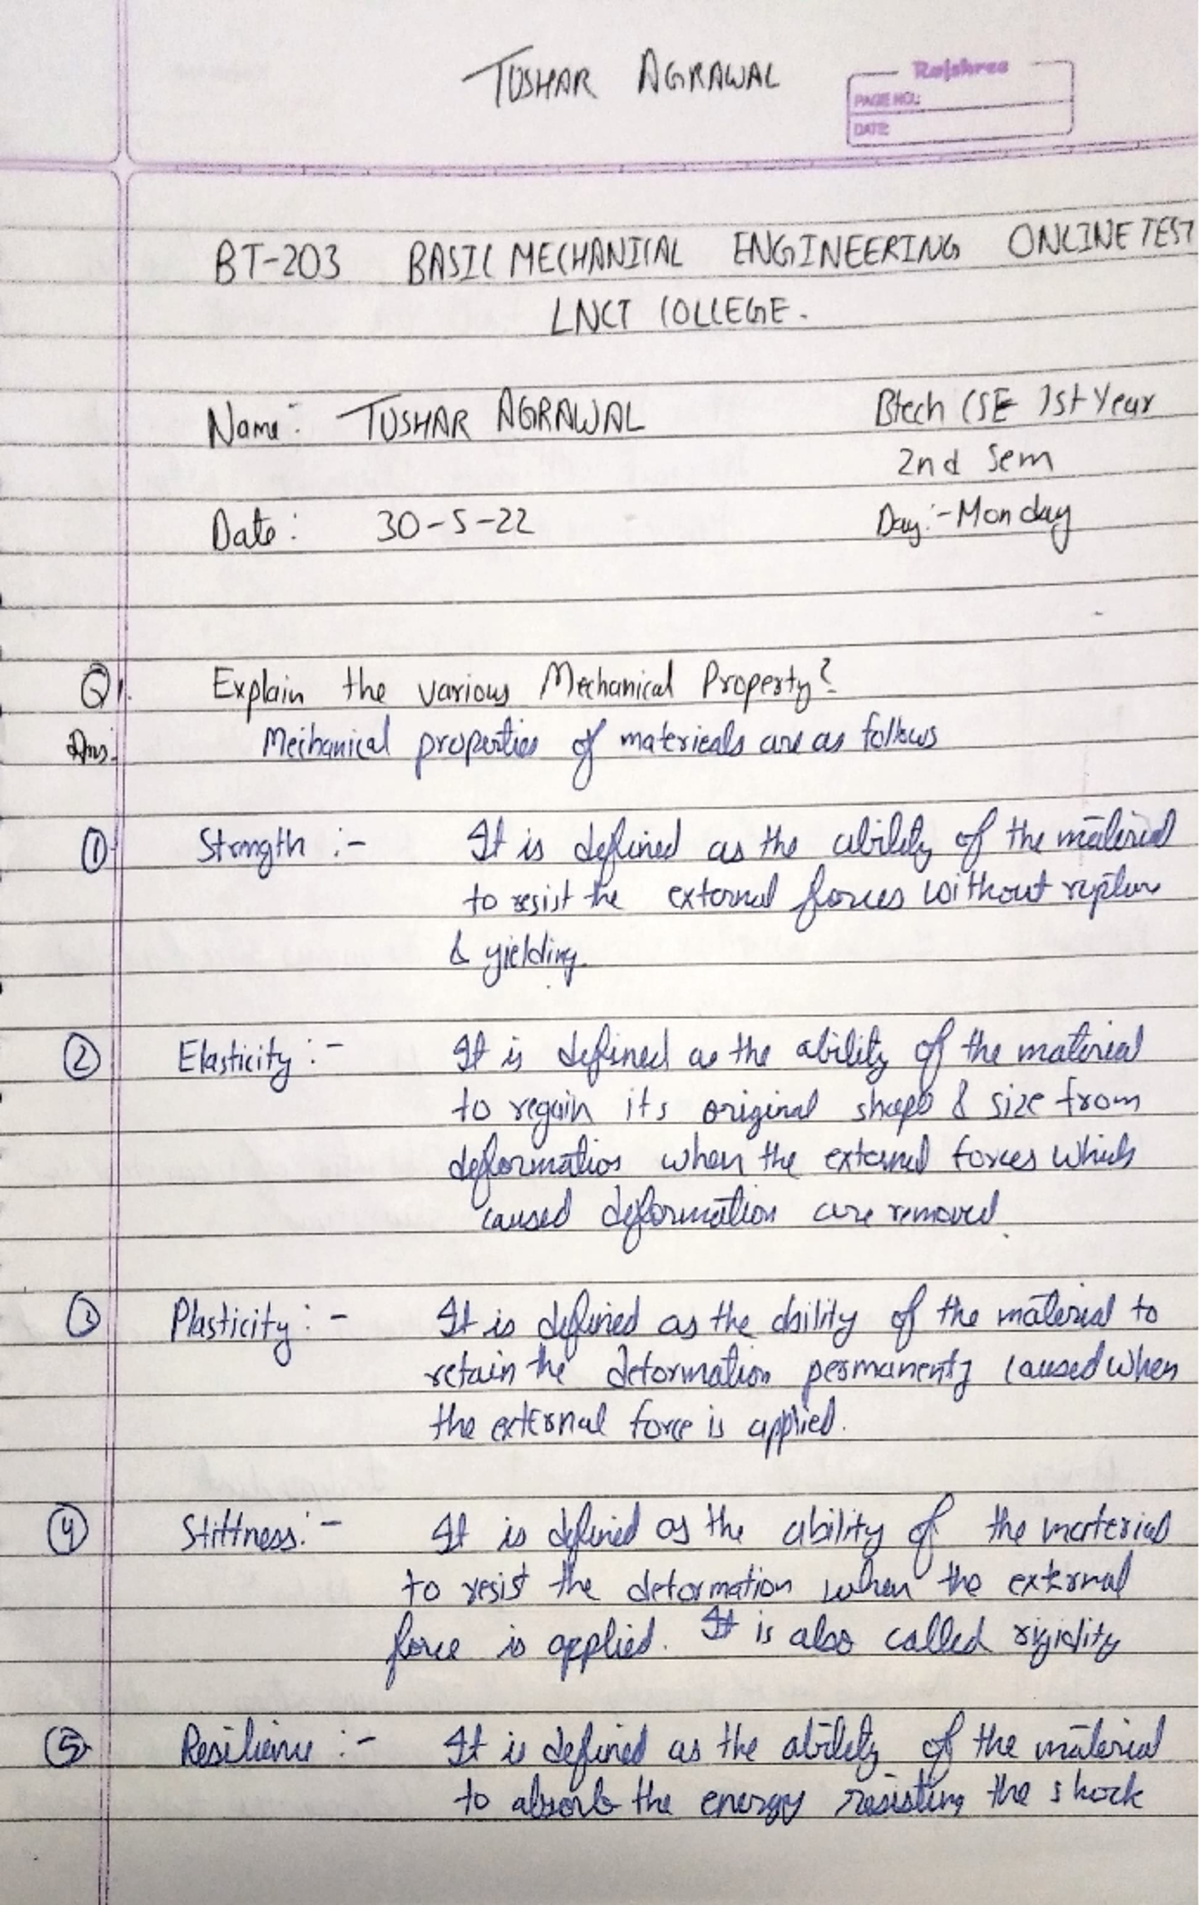 TUSHAR AGRAWAL
Rajshree
PAGE NO.:
DATE:
BT-203 BASIC MECHANICAL ENGINEERING ONLINE TEST
LNCT COLLEGE.
Name: TUSHAR AGRAWAL
Btech CSE 1st Year
2nd Sem
Date: 30-5-22
Day:- Monday
Q1. Explain the various Mechanical Property?
Ans: Mechanical properties of matericals are as follows
① Strength :- It is defined as the ability of the material
to resist the external forces without rupture
& yielding.
② Elasticity :- It is defined as the ability of the material
to regain its original shape & size from
deformation when the external forces which
caused deformation are removed.
③ Plasticity :- It is defined as the ability of the material to
retain the deformation permanently caused when
the external force is applied.
④ Stiffness :- It is defined as the ability of the material
to resist the deformation when the external
force is applied. It is also called rigidity
⑤ Resilience :- It is defined as the ability of the material
to absorb the energy resisting the shock